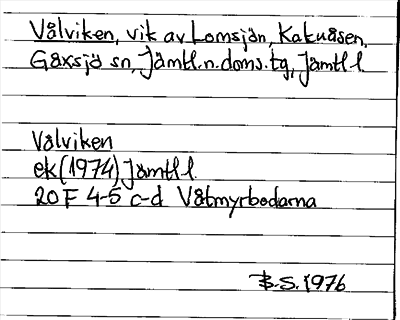 Vålviken, vik av Lomsjön, Kakuåsen,
Gåxsjö sn, Jämtl.n.doms.tg, Jämtl l.
Vålviken
ek (1974) Jämtl l.
20 F 4-5 c-d Våtmyrbodarna
B.S. 1976